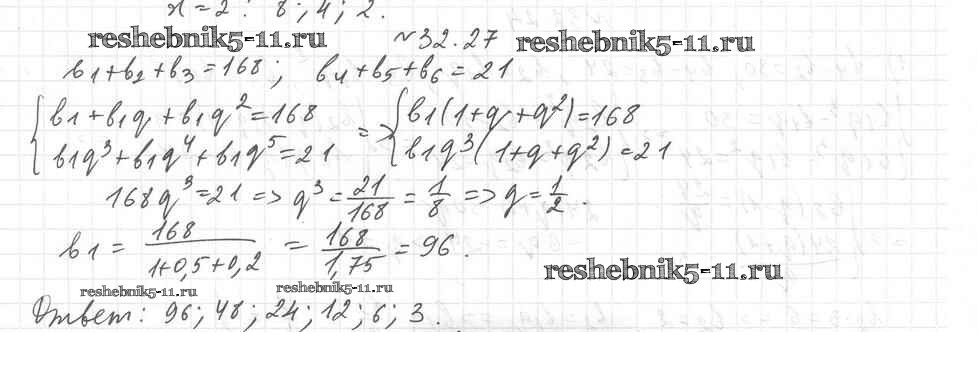 x = 2: 8; 4; 2.
reshebnik5-11.ru №32.27 reshebnik5-11.ru
b1+b2+b3=168; b4+b5+b6=21
{b1+b1q+b1q²=168 => {b1(1+q+q²)=168
{b1q³+b1q⁴+b1q⁵=21 {b1q³(1+q+q²)=21
168q³=21 => q³=21/168=1/8 => q=1/2.
b1 = 168/(1+0,5+0,2 = 168/1,75 = 96.
reshebnik5-11.ru
reshebnik5-11.ru reshebnik5-11.ru
Ответ: 96; 48; 24; 12; 6; 3.